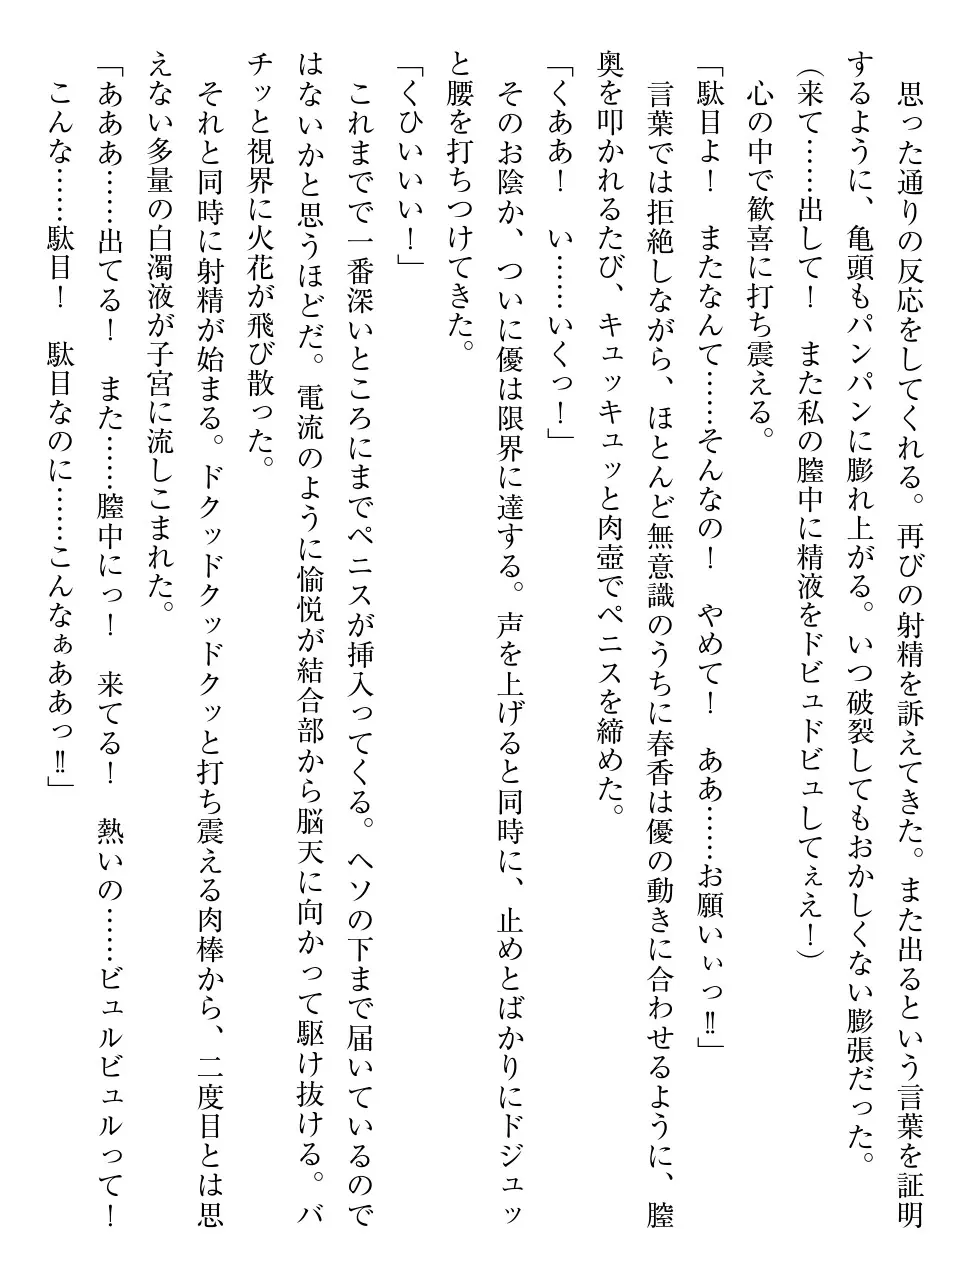 思った通りの反応をしてくれる。再びの射精を訴えてきた。また出るという言葉を証明
するように、亀頭もパンパンに膨れ上がる。いつ破裂してもおかしくない膨張だった。
（来て……出して！　また私の膣中に精液をドビュドビュしてぇえ！）
　心の中で歓喜に打ち震える。
「駄目よ！　またなんて……そんなの！　やめて！　ああ……お願いぃっ‼」
　言葉では拒絶しながら、ほとんど無意識のうちに春香は優の動きに合わせるように、膣
奥を叩かれるたび、キュッキュッと肉壺でペニスを締めた。
「くああ！　い……いくっ！」
　そのお陰か、ついに優は限界に達する。声を上げると同時に、止めとばかりにドジュッ
と腰を打ちつけてきた。
「くひいいい！」
　これまでで一番深いところにまでペニスが挿入ってくる。ヘソの下まで届いているので
はないかと思うほどだ。電流のように愉悦が結合部から脳天に向かって駆け抜ける。バ
チッと視界に火花が飛び散った。
　それと同時に射精が始まる。ドクッドクッドクッと打ち震える肉棒から、二度目とは思
えない多量の白濁液が子宮に流しこまれた。
「あああ……出てる！　また……膣中にっ！　来てる！　熱いの……ビュルビュルって！
こんな……駄目！　駄目なのに……こんなぁああっ‼」